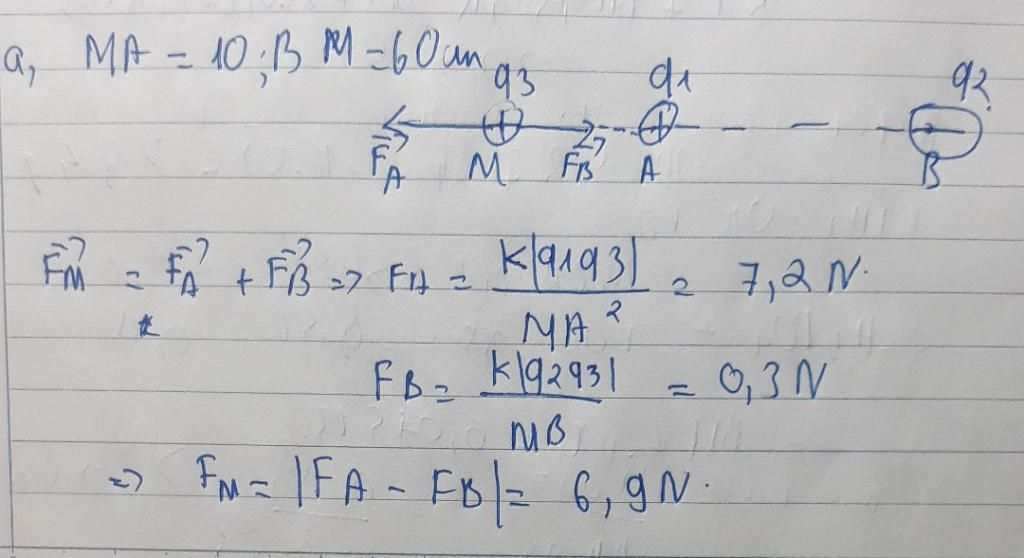 a, MA = 10 ; BM = 60cm
q3 q1 q2
+ + -
→FA M →FB A B
→FM = →FA + →FB => FA = K|q1q3| / MA² = 7,2 N.
FB = K|q2q3| / MB = 0,3 N
=> FM = |FA - FB| = 6,9N.